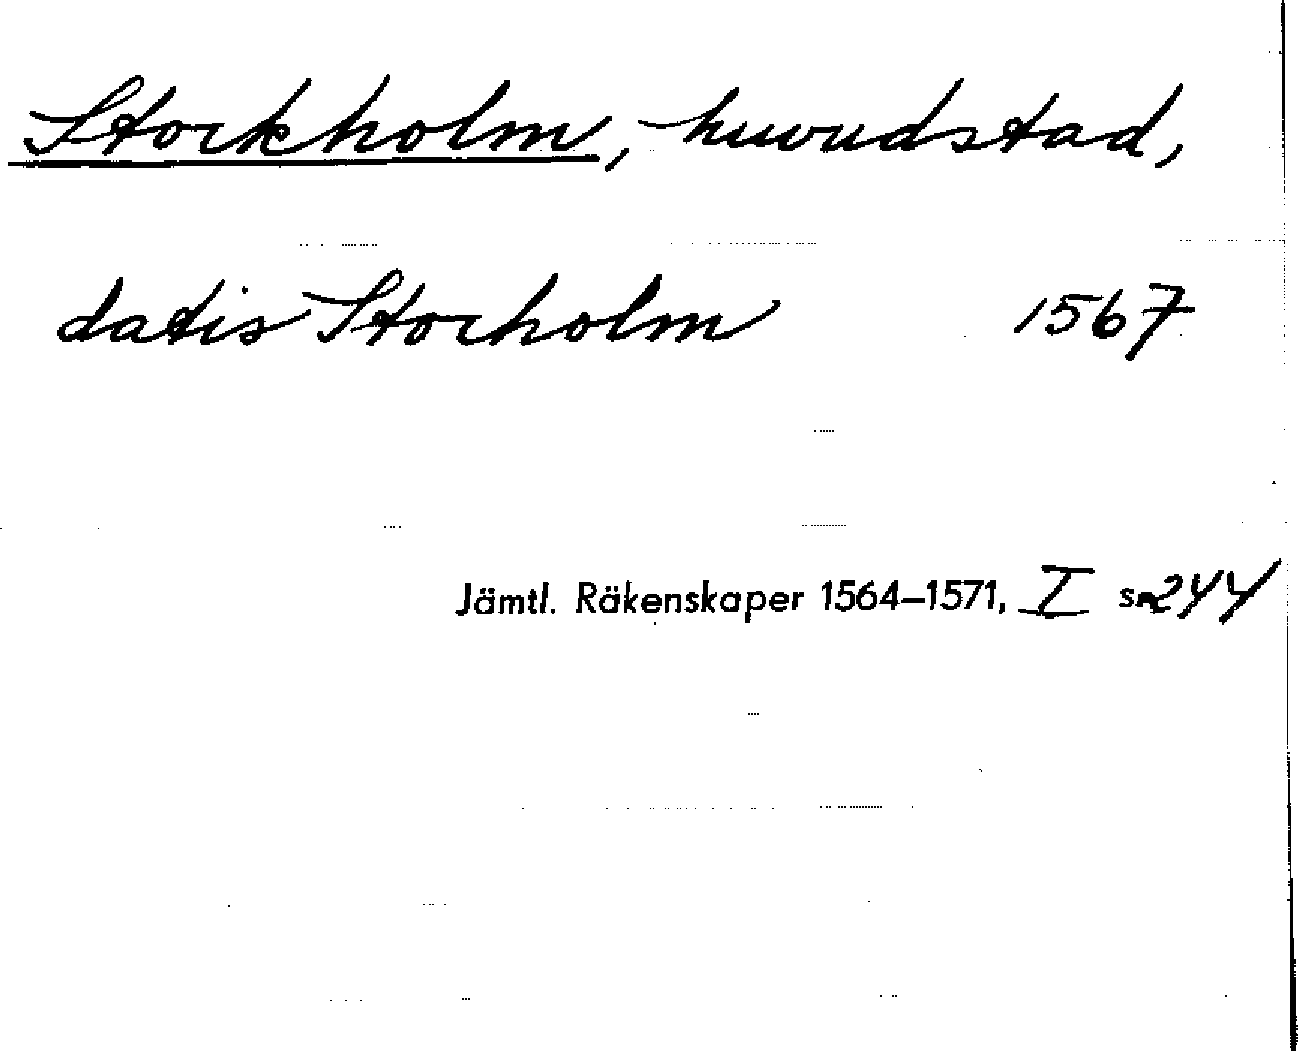 Stockholm, huvudstad,
datis Stocholm 1567
Jämtl. Räkenskaper 1564–1571, I s. 244